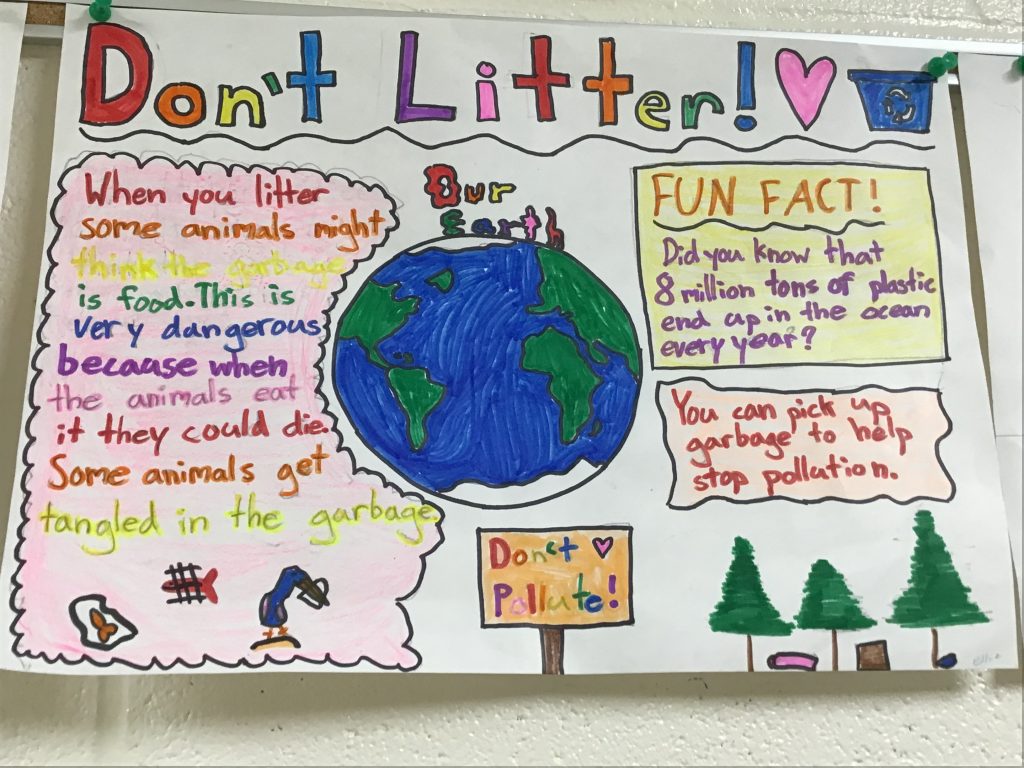 Don't Litter!
When you litter
some animals might
think the garbage
is food. This is
very dangerous
because when
the animals eat
it they could die.
Some animals get
tangled in the garbage.
Our
Earth
FUN FACT!
Did you know that
8 million tons of plastic
end up in the ocean
every year?
You can pick up
garbage to help
stop pollution.
Don't
Pollute!